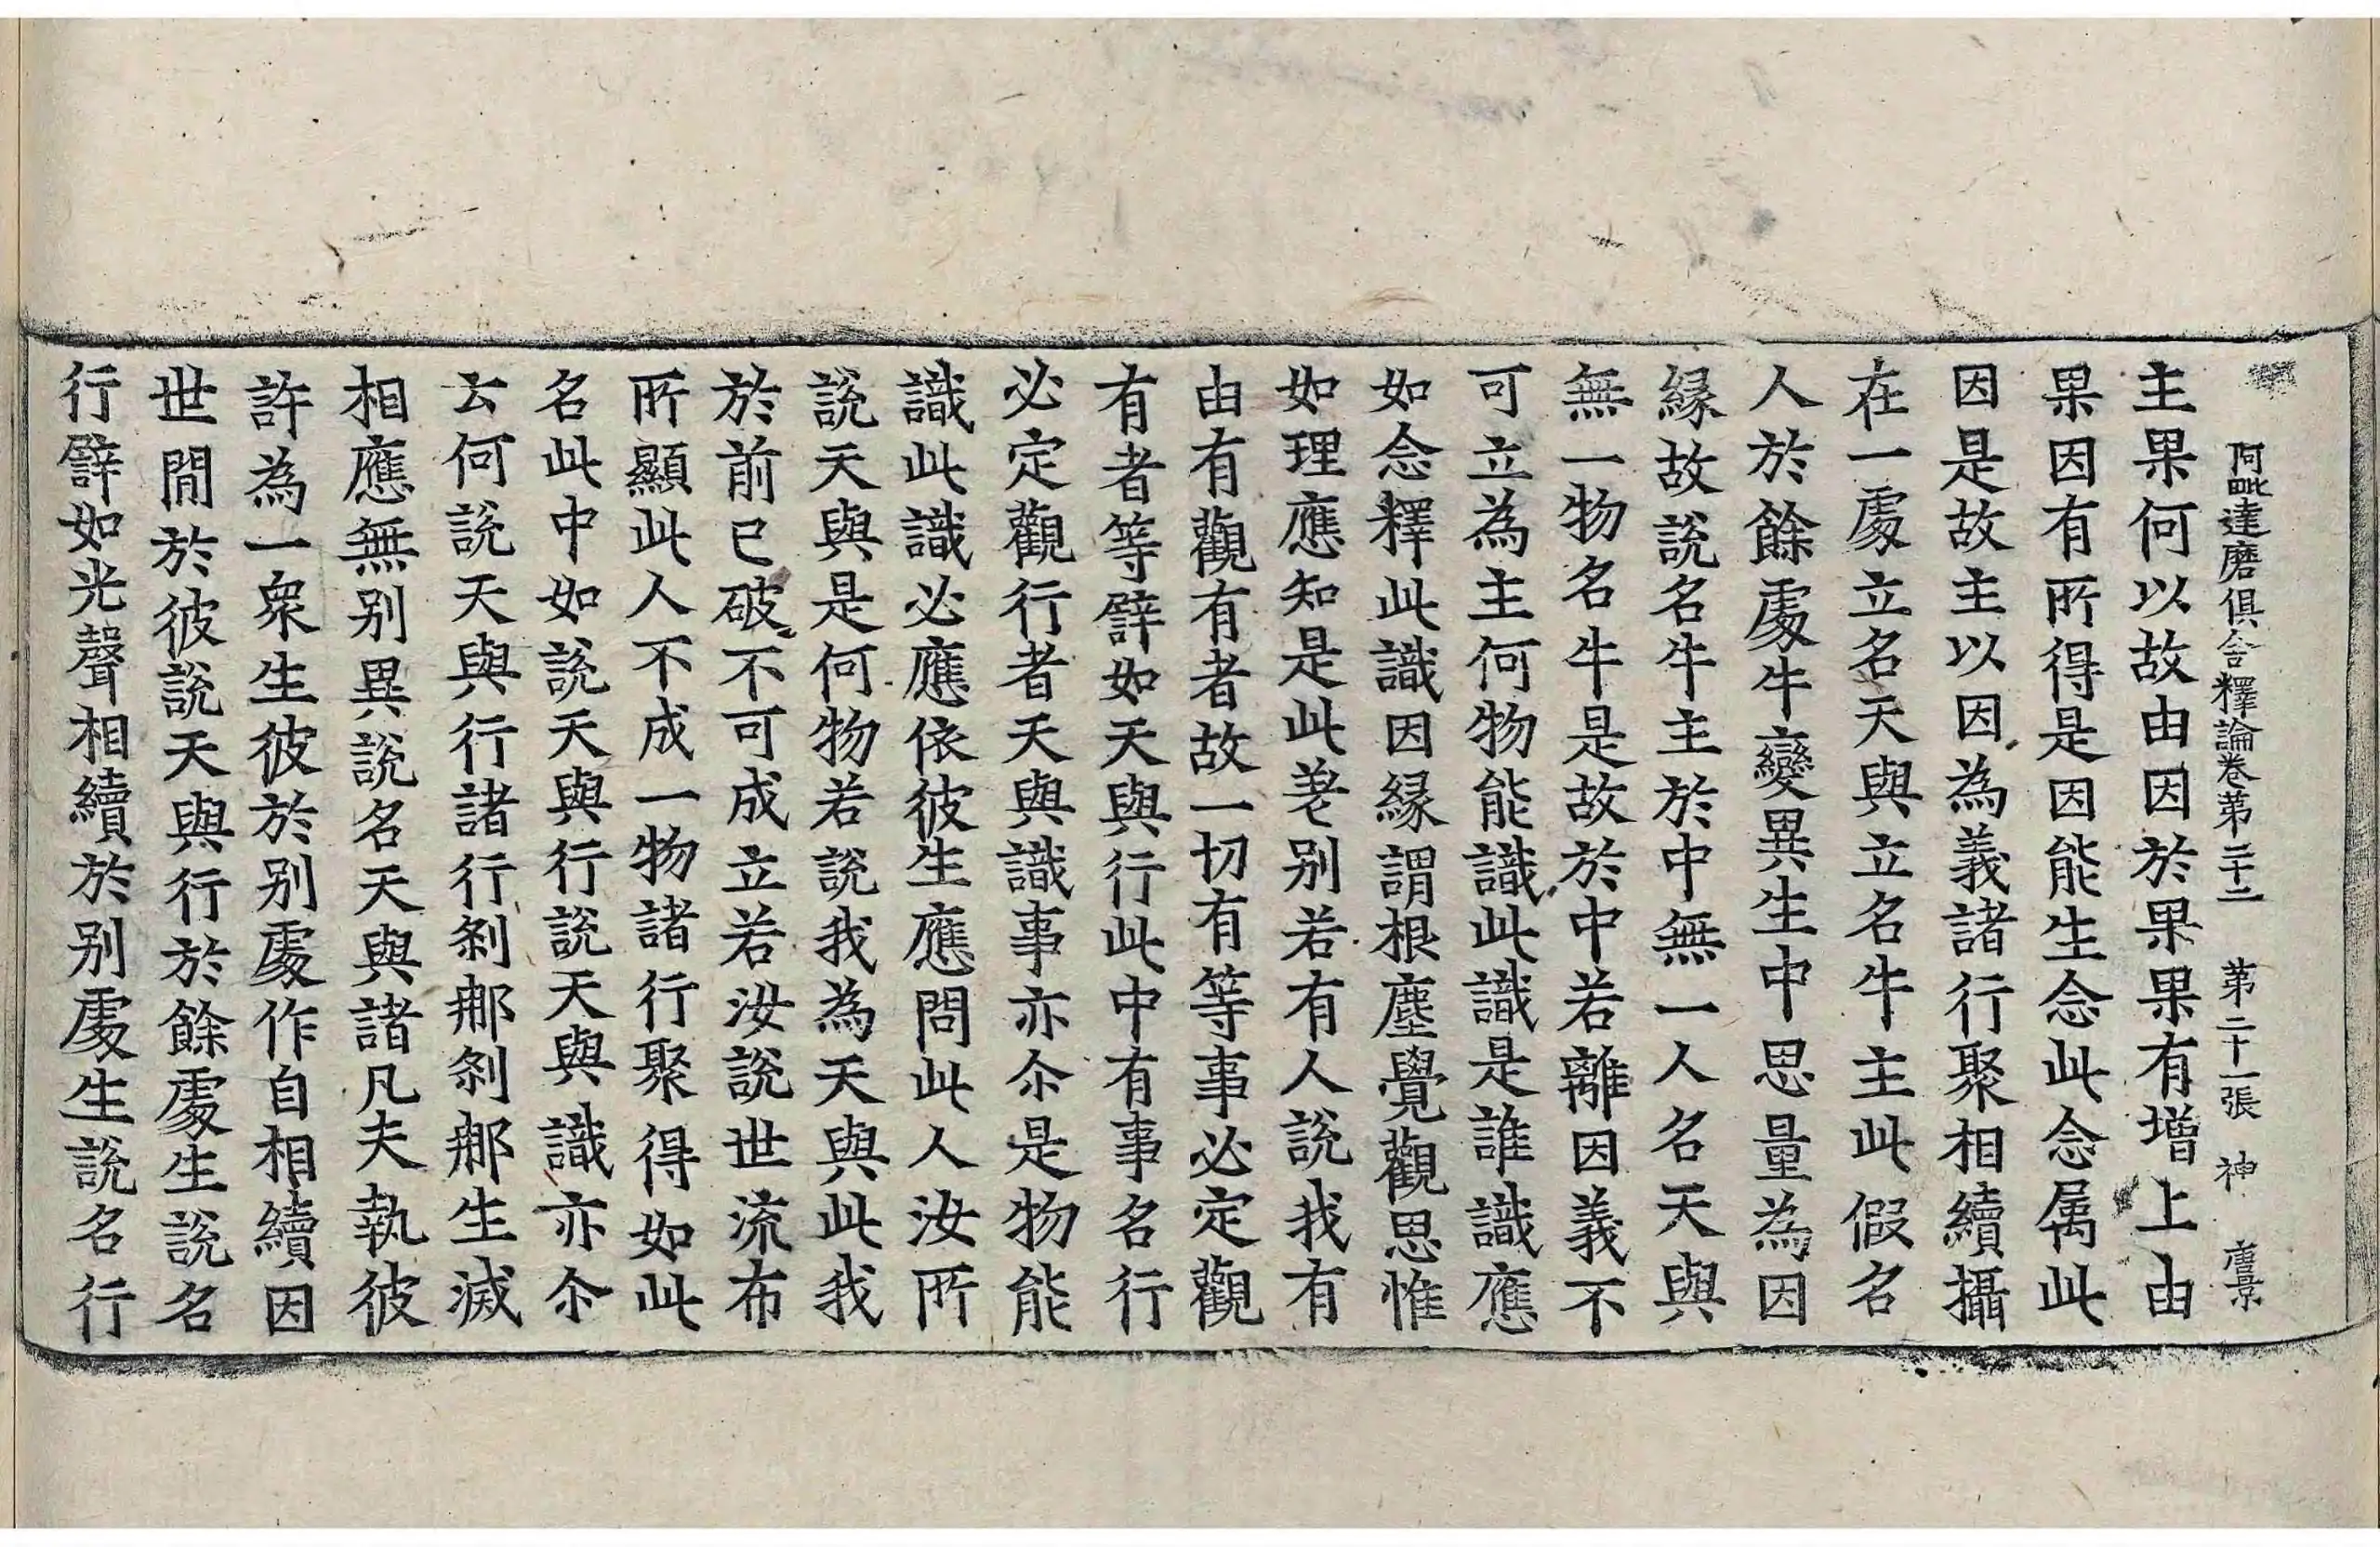 阿毗達磨俱舍釋論卷第二十二　第二十一張　神　唐景
主果何以故由因於果果有增上由
果因有所得是因能生念此念属此
因是故主以因為義諸行聚相續攝
在一處立名天與立名牛主此假名
人於餘處牛變異生中思量為因
縁故說名牛主於中無一人名天與
無一物名牛是故於中若離因義不
可立為主何物能識此識是誰識應
如念釋此識因縁謂根塵覺觀思惟
如理應知是此差别若有人說我有
由有觀有者故一切有等事必定觀
有者等譬如天與行此中有事名行
必定觀行者天與識事亦尒是物能
識此識必應依彼生應問此人汝所
說天與是何物若說我為天與此我
於前已破不可成立若汝說世流布
所顯此人不成一物諸行聚得如此
名此中如說天與行說天與識亦尒
云何說天與行諸行刹那刹那生滅
相應無别異說名天與諸凡夫執彼
許為一衆生彼於别處作自相續因
世間於彼說天與行於餘處生說名
行譬如光聲相續於别處生說名行